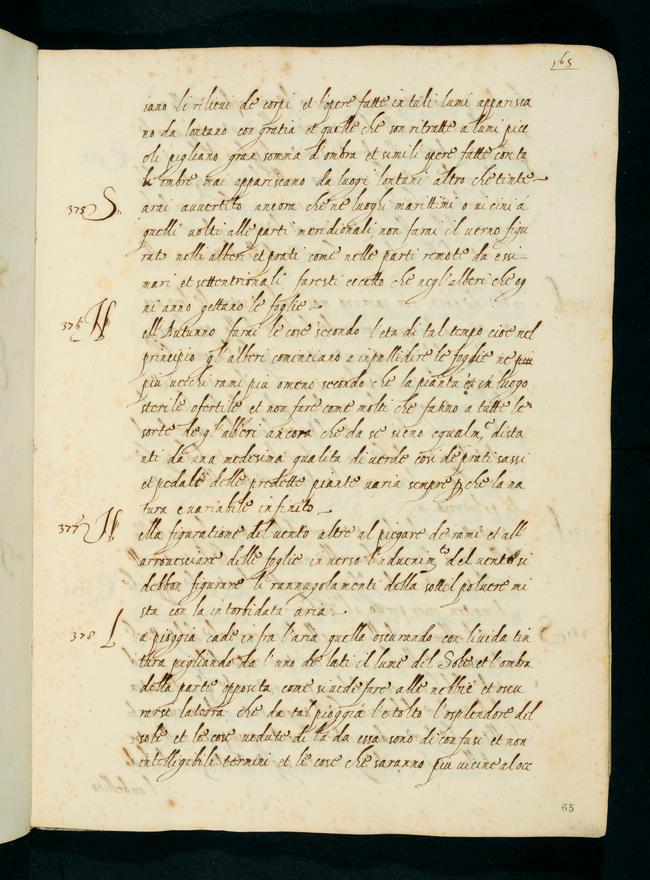 165
ciano li rilieui de corpi et l'opere fatte in tali lumi apparisca
no da lontano con gratia et quelle che son ritratte a lumi picc
oli pigliano gran somma d'ombra et simili opere fatte con ta
li ombre mai appariscano da luoghi lontani altro che tinte
375 S.
arai auuertito ancora che ne luoghi marittimi o uicini a
quelli uolti alle parti meridionali non farai il uerno figu
rato nelli alberi et prati come nelle parti remote da essi
mari et settentrionali faresti eccetto che negl'alberi che og
ni anno gettano le foglie
376 N
ell Autunno farai le cose secondo l'eta di tal tempo cioe nel
principio gl'alberi cominciano a inpallidire le foglie ne piu
piu uecchi rami piu o meno secondo che la pianta è in luogo
sterile o fertile et non fare come molti che fanno a tutte le
sorte de gl'alberi ancora che da se sieno equalm.e dista
nti da una medesima qualita di uerde cosi de prati sassi
et pedali delle predette piante uaria sempre p che la na
tura e uariabile in infinito
377 N
ella figuratione del uento altre al piegare de rami et all
arrouesciare delle foglie inuerso l'aduenim.to del uento si
debbon figurare li rannugolamenti della sottil poluere mi
sta con la intorbidata aria
378 L
a pioggia cade infra l'aria quella oscurando con liuida tin
tura pigliando da l'uno de lati il lume del Sole et l'ombra
della parte opposita come si uede fare alle nebbie et oscu
rarsi la terra che da tal pioggia l'e tolto l'osplendore del
sole et le cose uedute di la da essa sono di confusi et non
intelligibili termini et le cose che saranno piu uicine al occ
65